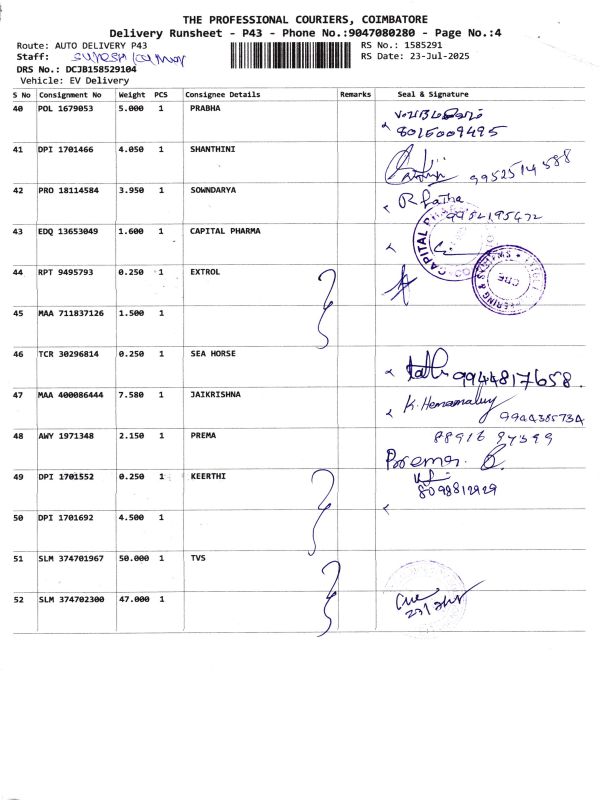 THE PROFESSIONAL COURIERS, COIMBATORE
Delivery Runsheet - P43 - Phone No.:9047080280 - Page No.:4
Route: AUTO DELIVERY P43 RS No.: 1585291
Staff: RS Date: 23-Jul-2025
DRS No.: DCJB158529104
Vehicle: EV Delivery
S No Consignment No Weight PCS Consignee Details Remarks Seal & Signature
40 POL 1679053 5.000 1 PRABHA
8015009495
41 DPI 1701466 4.050 1 SHANTHINI
9952514588
42 PRO 18114584 3.950 1 SOWNDARYA R Latha
9954195672
43 EDQ 13653049 1.600 1 CAPITAL PHARMA
44 RPT 9495793 0.250 1 EXTROL
45 MAA 711837126 1.500 1
46 TCR 30296814 0.250 1 SEA HORSE
9944817658
47 MAA 400086444 7.580 1 JAIKRISHNA K. Hemamaluy
9944385734
48 AWY 1971348 2.150 1 PREMA
Prema.
49 DPI 1701552 0.250 1 KEERTHI
8098812929
50 DPI 1701692 4.500 1
51 SLM 374701967 50.000 1 TVS
52 SLM 374702300 47.000 1